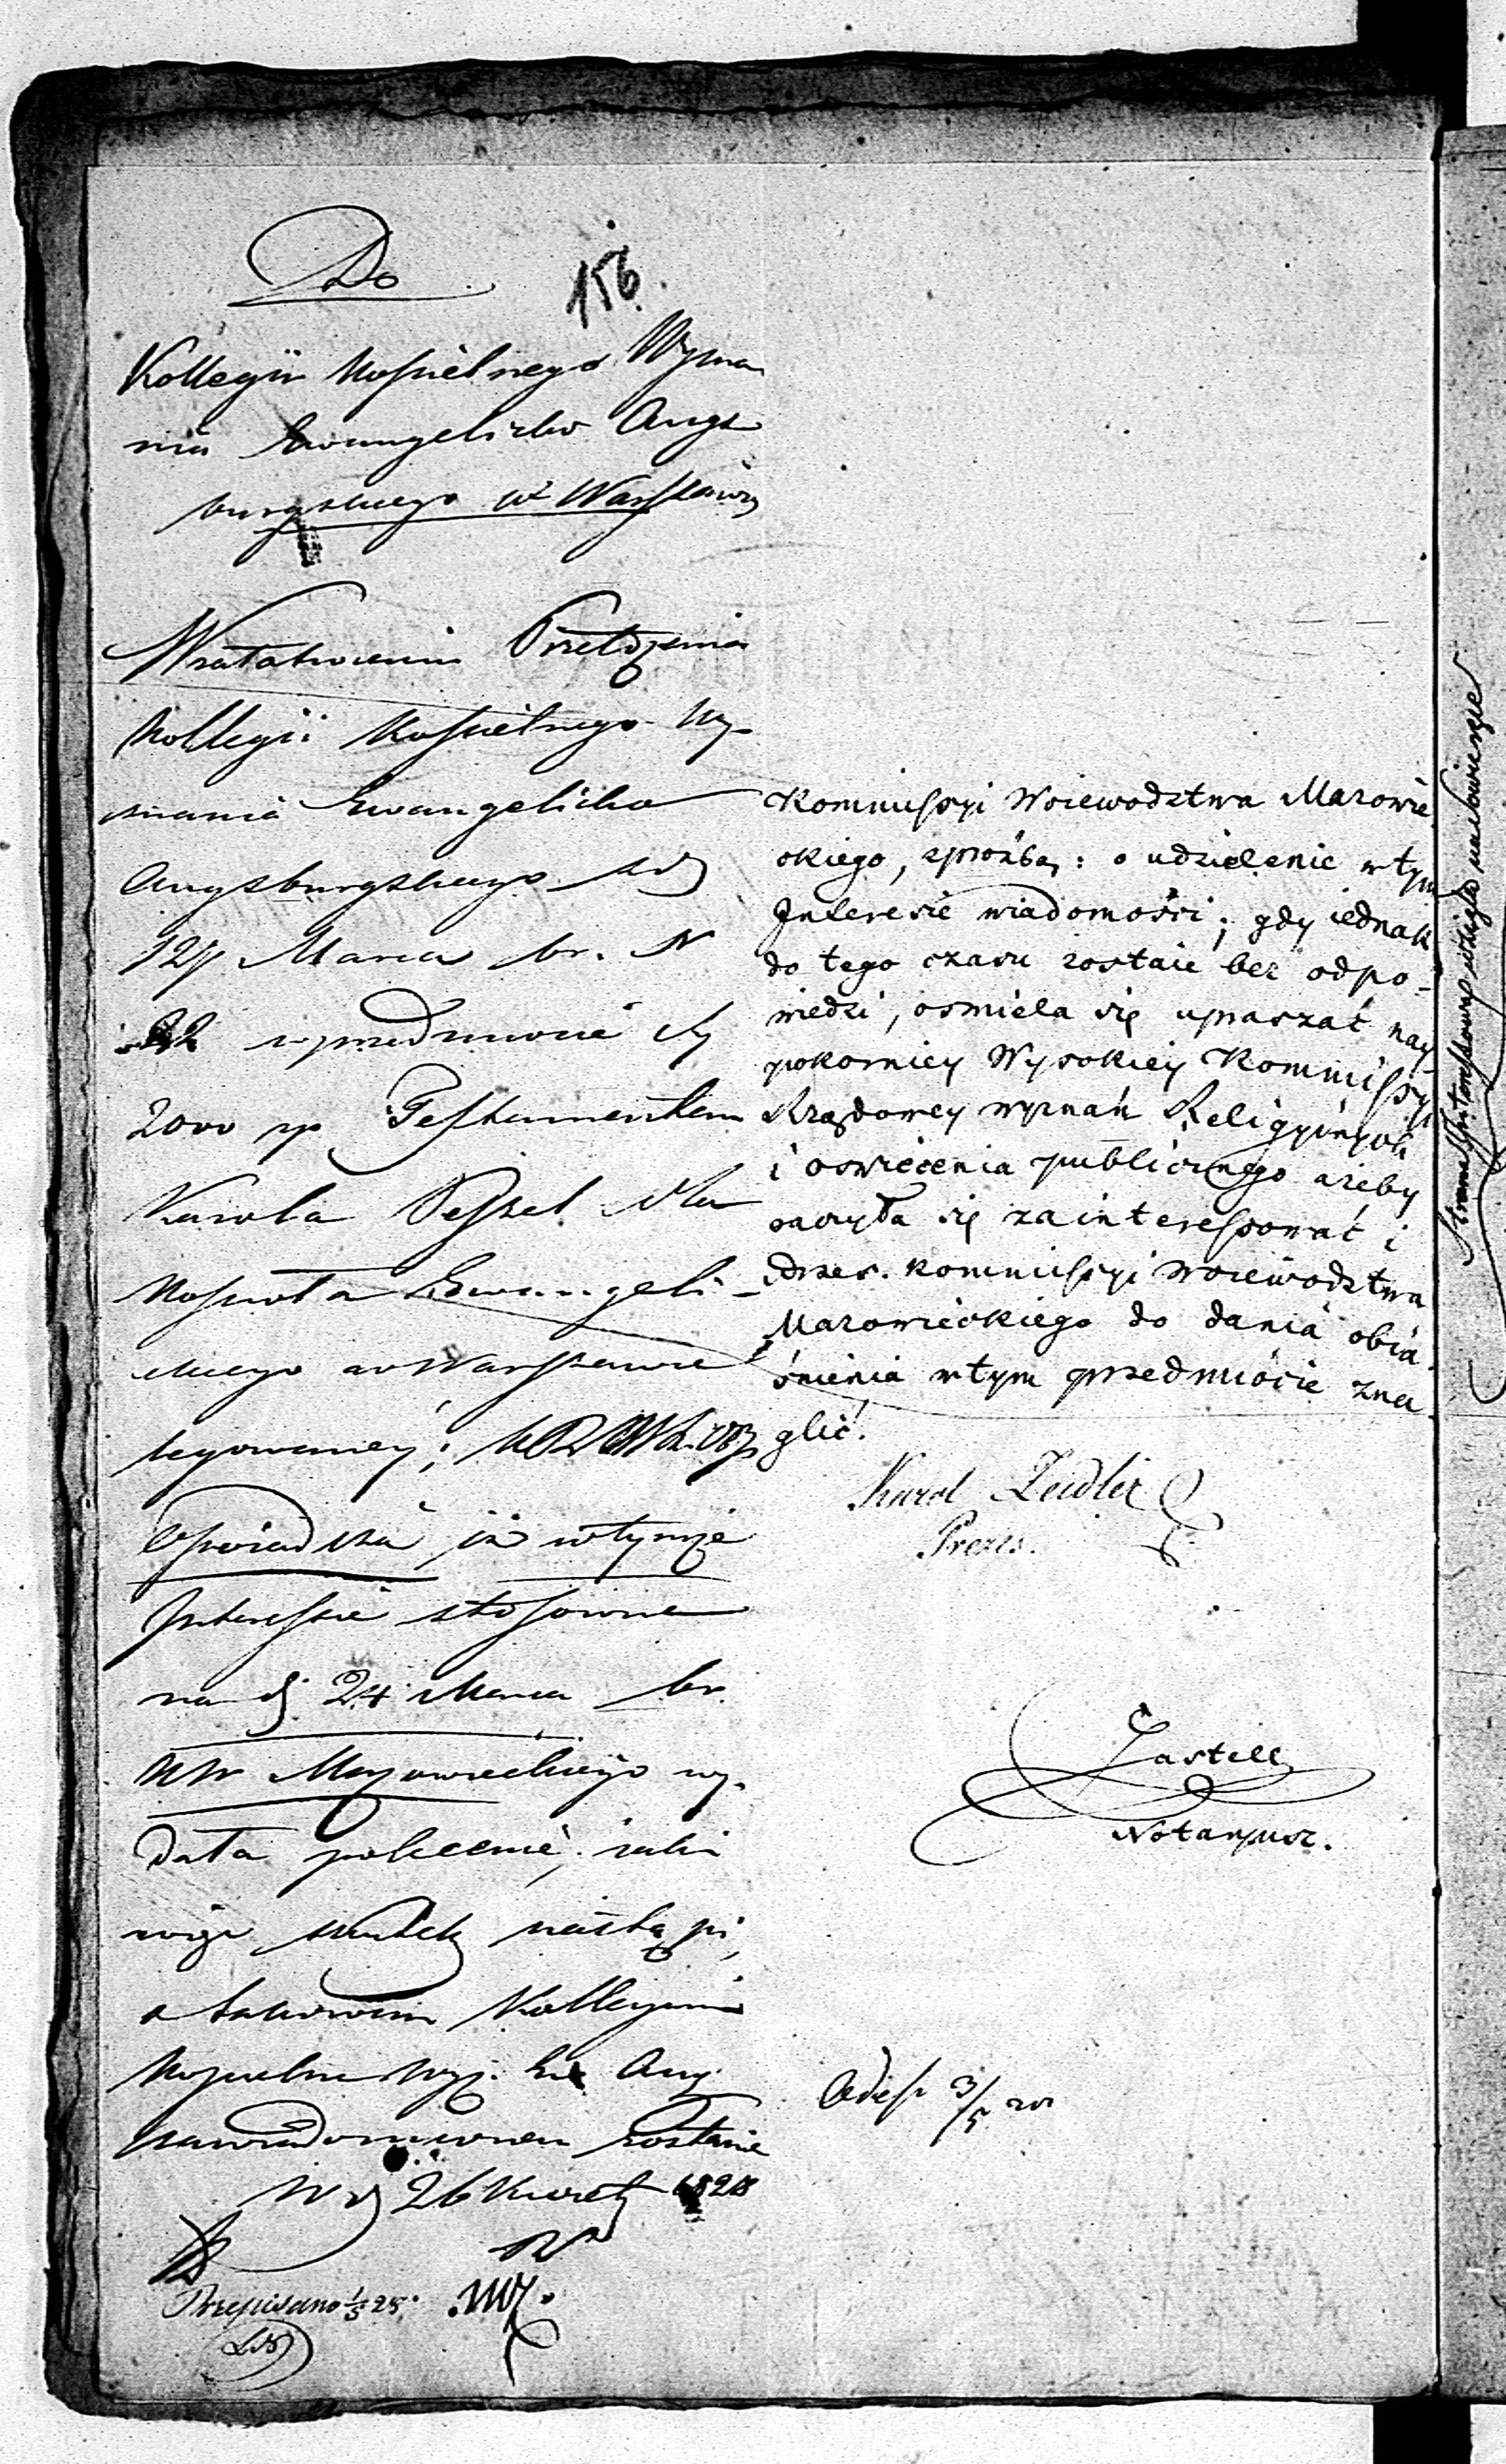 156.
Do
Kollegii Kościelnego Wyzna
nia Ewangelicko Augs
burgskiego w Warszawie
W załatwieniu Przełożenia
Kollegii Kościelnego Wy-
znania Ewangelicko
Augsburgskiego z d
12 Marca br. N
w przedmiocie
2000 zp Testamentem
Karola dla
Kościoła Ewangeli-
ckiego w Warszawie
legowaney;
Oświadcza iż w tymże
Interessie stosowne
na dj 24 Marca br.
KW Mazowieckiego wy-
dała polecenie, jaki
więc skutek nastąpi,
o takowem Kollegium
Kościelne Wyz. Ew. Aug.
zawiadomione zostanie
W d 26 Kwiet 1828
Przepisano 1/5 28.
Kommissyi Woiewodztwa Mazowie
ckiego, z prozbą: o udzielenie w tym
Interesie wiadomości; gdy iednak
do tego czasu zostaie bez odpo-
wiedzi, osmiela się upraszać nay
pokorniey Wysokiey Kommissyi
Rządowey wyznań Religyinych
i oswiecenia publicznego ażeby
raczyła się zainteressować i
Prześ. Kommissyi Woiewodztwa
Mazowieckiego do dania obia-
śnienia w tym przedmiocie zna-
glić.
Karol Zeidler
Prezes.
Notaryusz.
3/5